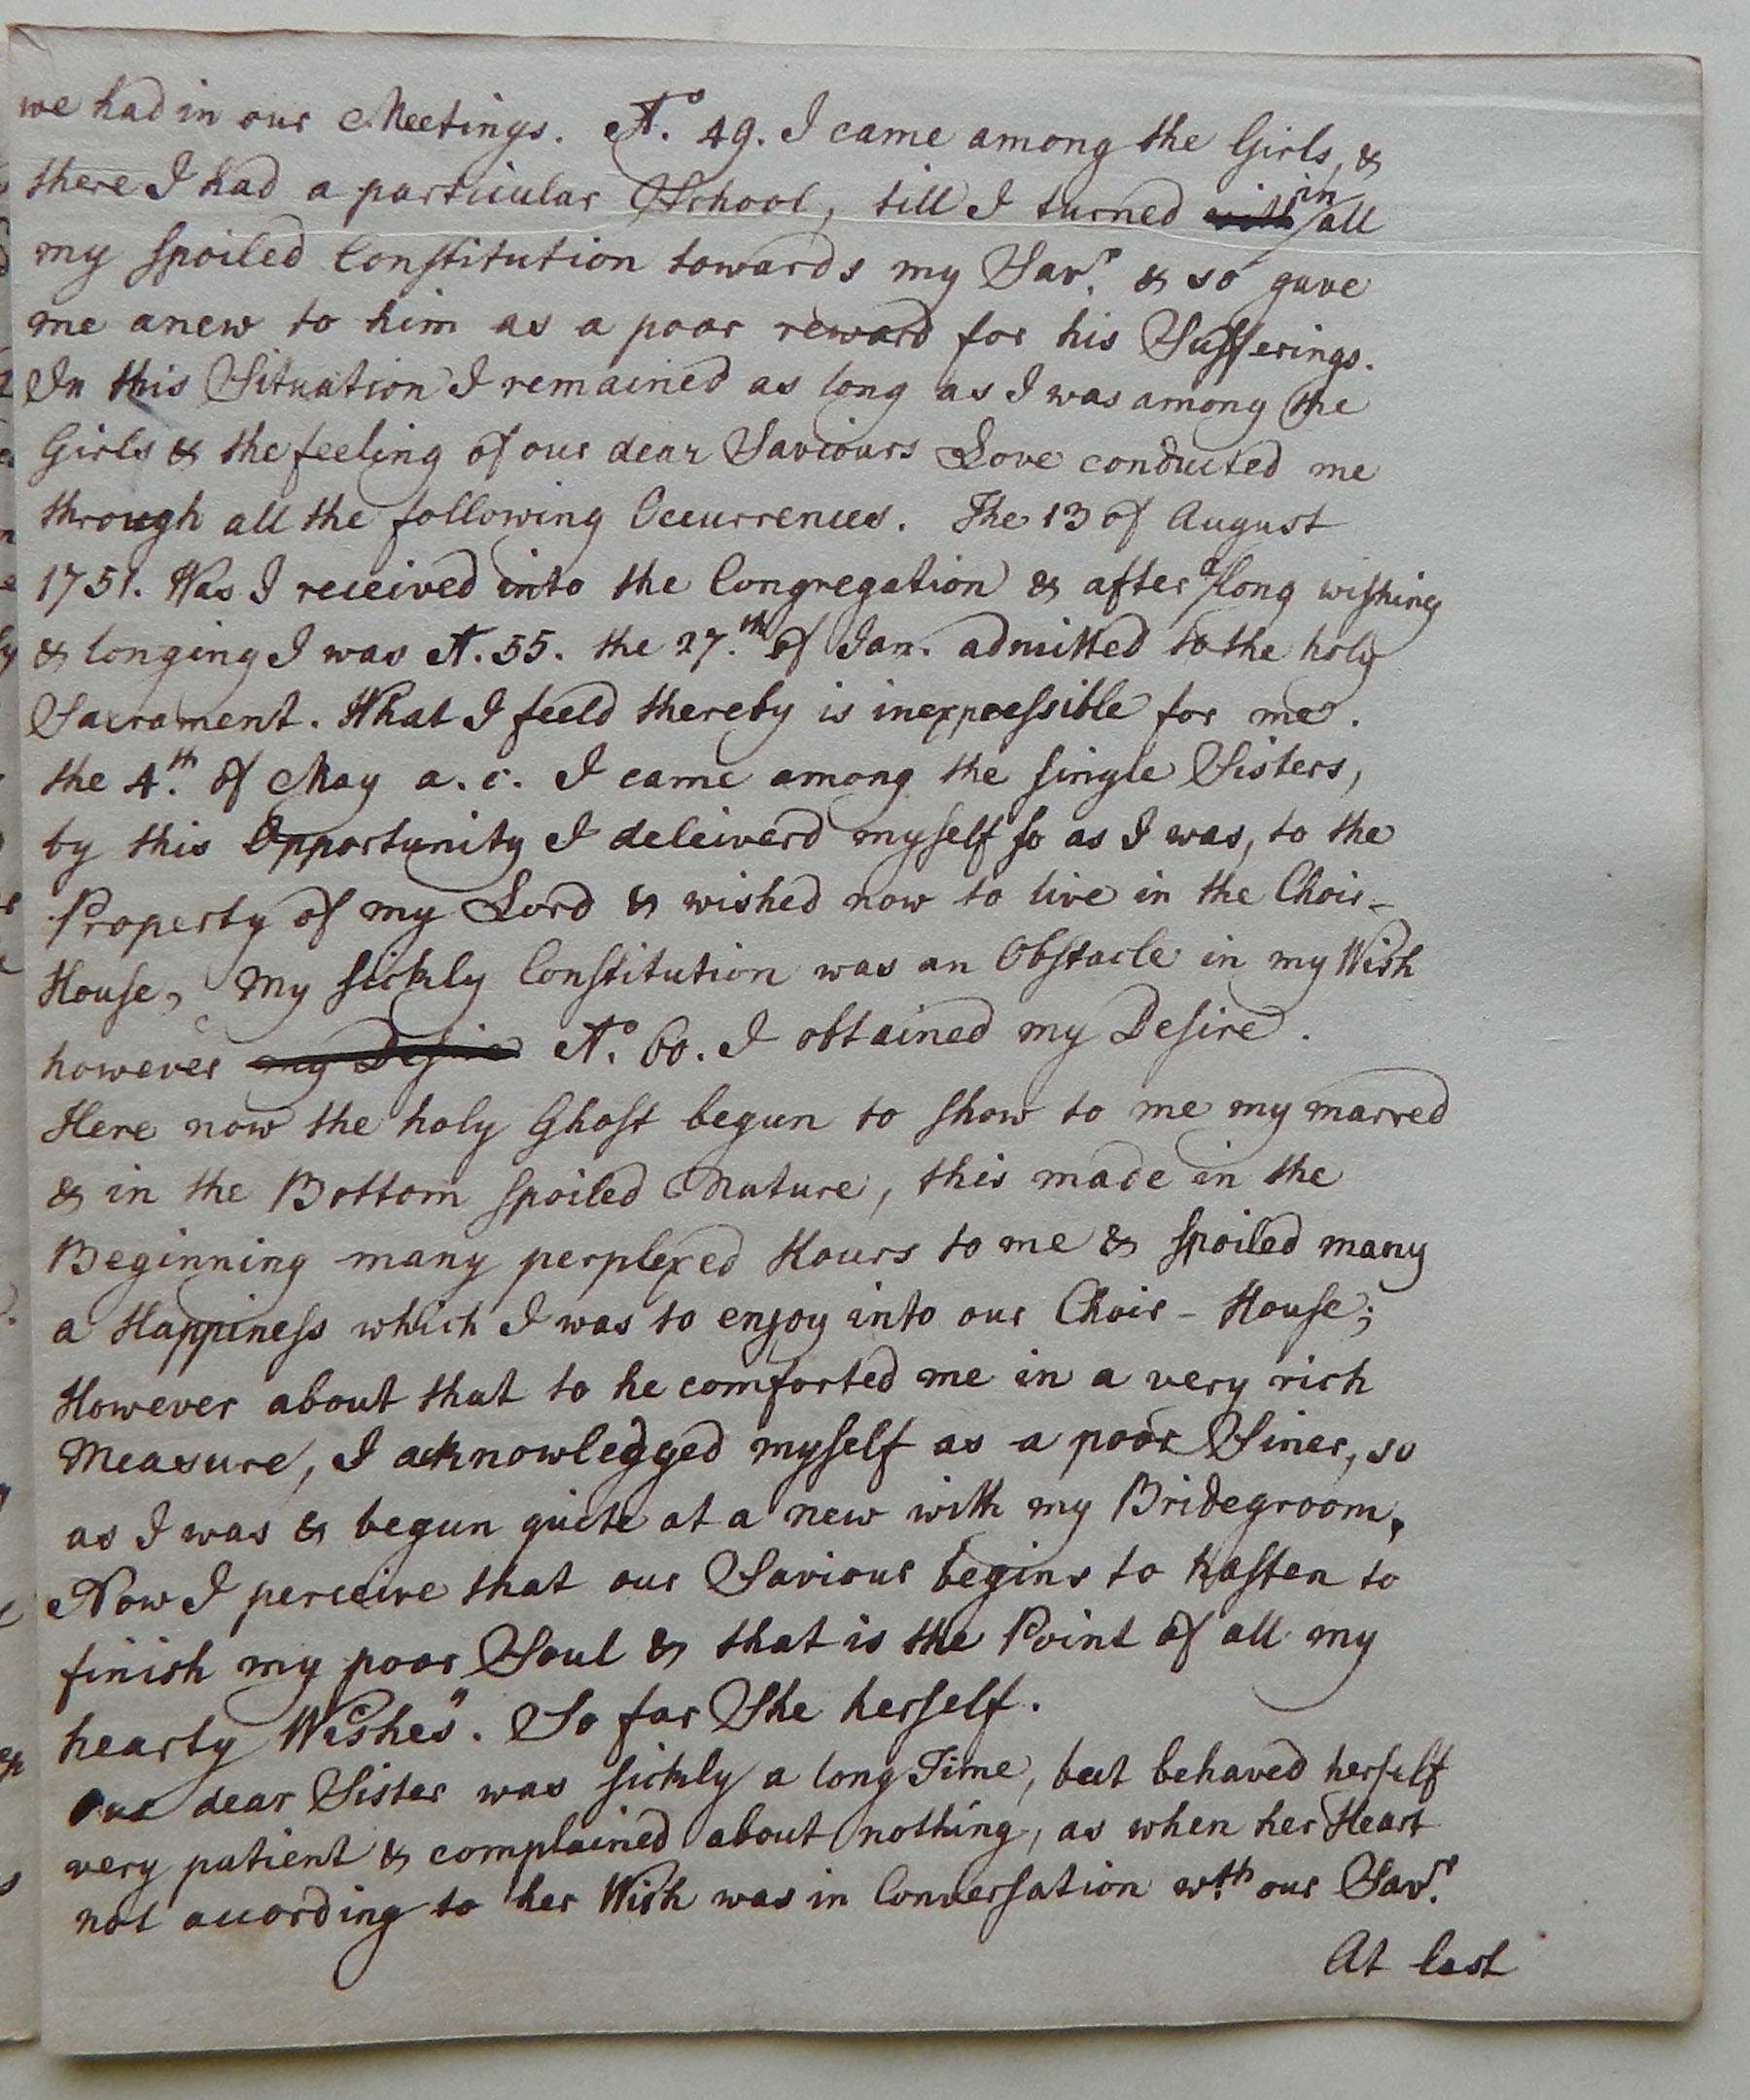 we had in our Meetings. Aº. 49. I came among the Girls, &
there I had a particular School, till I turned in all
my spoiled Constitution towards my Savr. & so gave
me anew to him as a poor reward for his Sufferings.
In this Situation I remained as long as I was among the
Girls & the feeling of our dear Saviours Love conducted me
through all the following Occurrences. The 13 of August
1751. Was I received into the Congregation & after a long wishing
& longing I was A. 55. the 27.th of Jan. admitted to the holy
Sacrament. What I feeld thereby is inexpressible for me.
the 4.th of May a. c. I came among the single Sisters,
by this Opportunity I deleiverd myself so as I was, to the
Property of my Lord & wished now to live in the Choir-
House, My sickly Constitution was an Obstacle in my Wish
however my Desire Aº. 60. I obtained my Desire.
Here now the holy Ghost begun to show to me my marred
& in the Bottom spoiled Nature, this made in the
Beginning many perplexed Hours to me & spoiled many
a Happiness which I was to enjoy into our Choir-House;
However about that to he comforted me in a very rich
Measure, I acknowledgged myself as a poor Siner, so
as I was & begun quite at a new with my Bridegroom,
Now I perceive that our Saviour begins to hasten to
finish my poor Soul & that is the Point of all my
hearty Wishes". So far She herself.
Our dear Sister was sickly a long Time, but behaved herself
very patient & complained about nothing, as when her Heart
not according to her Wish was in Conversation wth. our Savr.
At last